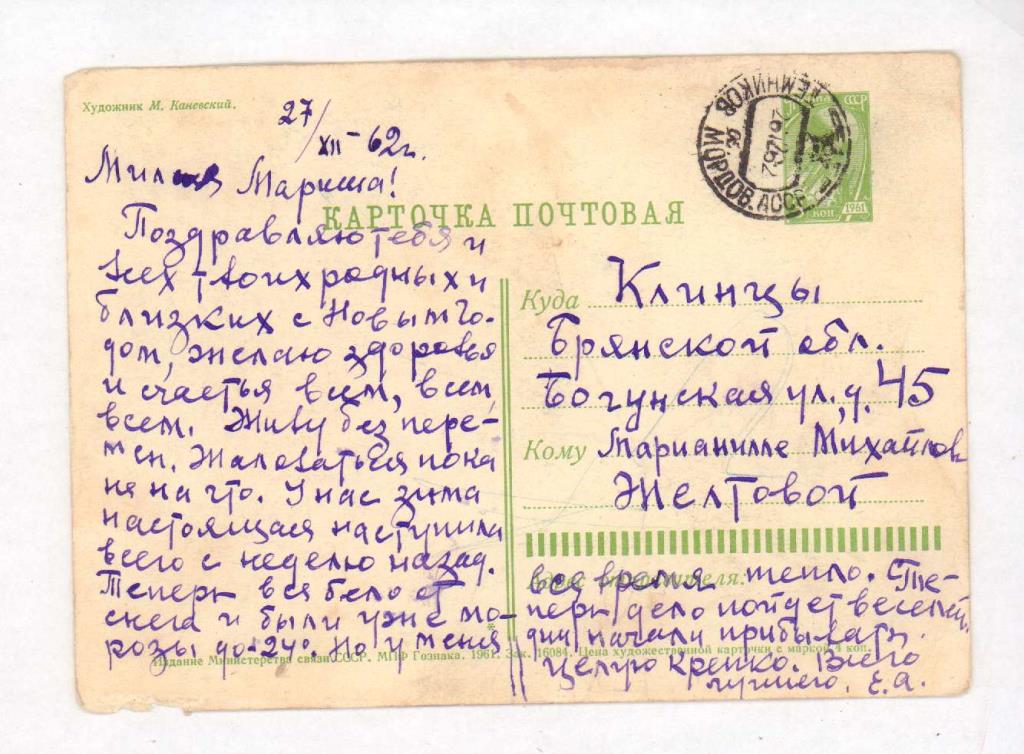 Художник М. Каневский.
27/XII-62г.
Милая Мариша!
КАРТОЧКА ПОЧТОВАЯ
Поздравляю тебя и
всех твоих родных и
близких с Новым Го-
дом, желаю здоровья
и счастья всем, всем,
всем. Живу без пере-
мен. Жаловаться пока
не на что. У нас зима
настоящая наступила
всего с неделю назад.
Теперь вся бело от
снега и были уже мо-
розы до -24°. Но у меня
все время тепло. Те-
перь дело пойдет веселей
дни начали прибывать.
Целую крепко. Всего
лучшего. Е.А.
Куда Клинцы
Брянской обл.
Богунская ул., д. 45
Кому Марианилле Михайлов
Желтовой
Адрес отправителя:
Издание Министерства связи СССР. МПФ Гознака. 1961. Зак. 16084. Цена художественной карточки с маркой 4 коп.
ТЕМНИКОВ
МОРДОВ. АССР
СССР
КОП
1961